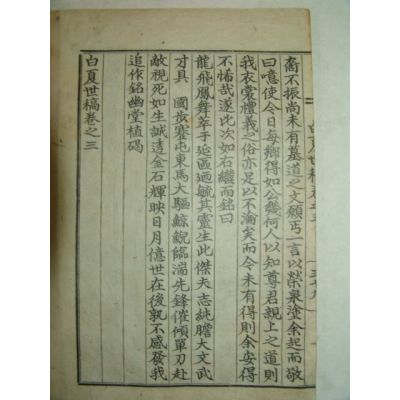 裔不振尚未有墓道之文願丐一言以榮泉塗余起而敬
曰噫使今日每鄉得如公幾何人以知尊君親上之道則
我衣裳禮義之俗亦足以不淪矣而今未有得則余安得
不悕哉遂此次如右繼而銘曰
龍飛鳳舞萃于延區廻毓其靈生此傑夫志純膽大文武
才具　國步蹇屯東馬大驅鯨鯢臨湍先鋒催傾單刃赴
敵視死如生誠透金石輝映日月億世在後孰不感發我
追作銘幽堂植碣
白夏世稿卷之三